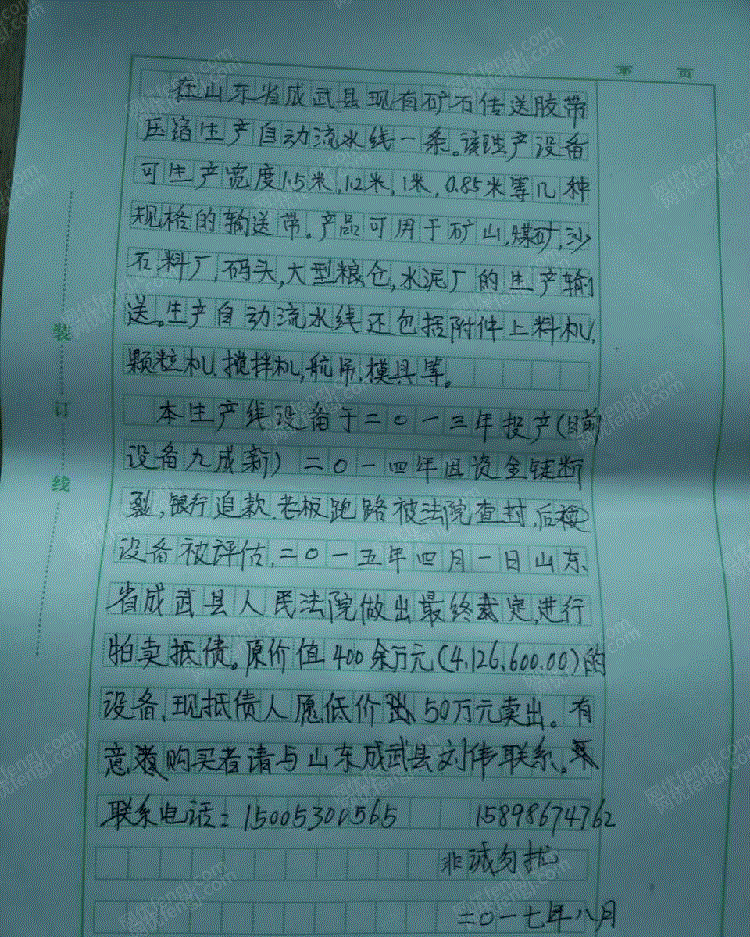 第 页
在山东省成武县现有矿石传送胶带
压缩生产自动流水线一条。该生产设备
可生产宽度1.5米,1.2米,1米,0.85米等几种
规格的输送带。产品可用于矿山,煤矿,沙
石料厂,码头,大型粮仓,水泥厂的生产输
送。生产自动流水线还包括附件上料机,
颗粒机,搅拌机,航吊,模具等。
本生产线设备于二〇一三年投产(目前
设备九成新)二〇一四年因资金链断
裂,银行追款,老板跑路被法院查封,后被
设备被评估,二〇一五年四月一日山东
省成武县人民法院做出最终裁定,进行
拍卖抵债。原价值400余万元(4,126,600.00)的
设备,现抵债人愿低价 50万元卖出。有
意 购买者请与山东成武县刘伟联系。
联系电话:15005300565 15898674762
非诚勿扰
二〇一七年八月
装
订
线